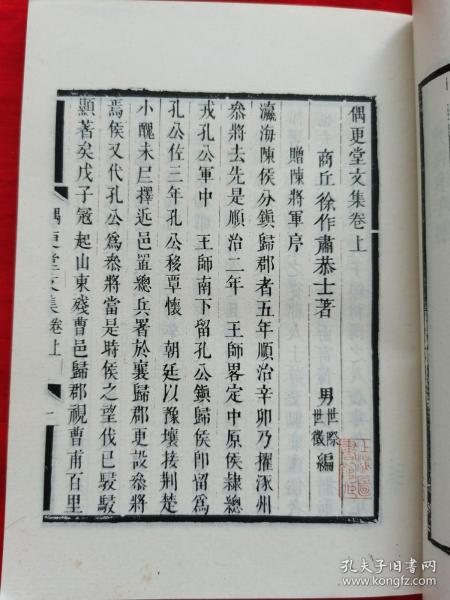 偶更堂文集卷上
商丘徐作肅恭士著　男世際世徵編
贈陳將軍序
瀛海陳侯分鎮歸郡者五年順治辛卯乃擢涿州
叅將去先是順治二年　王師畧定中原侯隷總
戎孔公軍中　王師南下留孔公鎮歸侯卽留爲
孔公佐三年孔公移覃懷　朝廷以豫壤接荆楚
小醜未巳擇近邑置總兵署於襄歸郡更設叅將
焉侯又代孔公爲叅將當是時侯之望伐已駸駸
顯著矣戊子冦起山東殘曹邑歸郡視曹甫百里
偶更堂文集卷上　一
孔夫子旧书网
www.kongfz.com